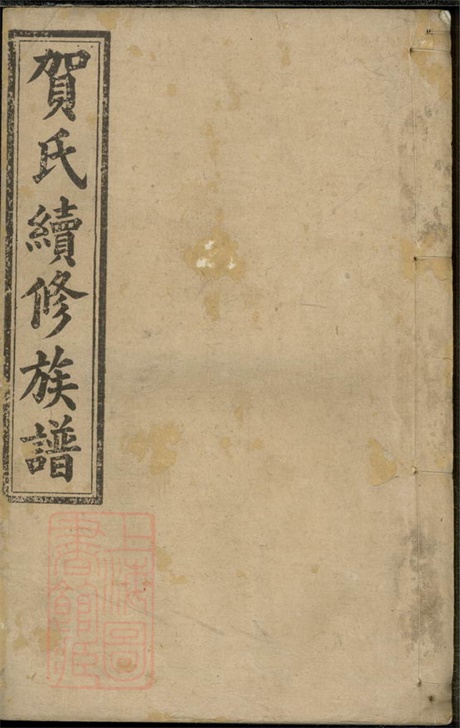 賀氏續修族譜
上海圖
書館藏